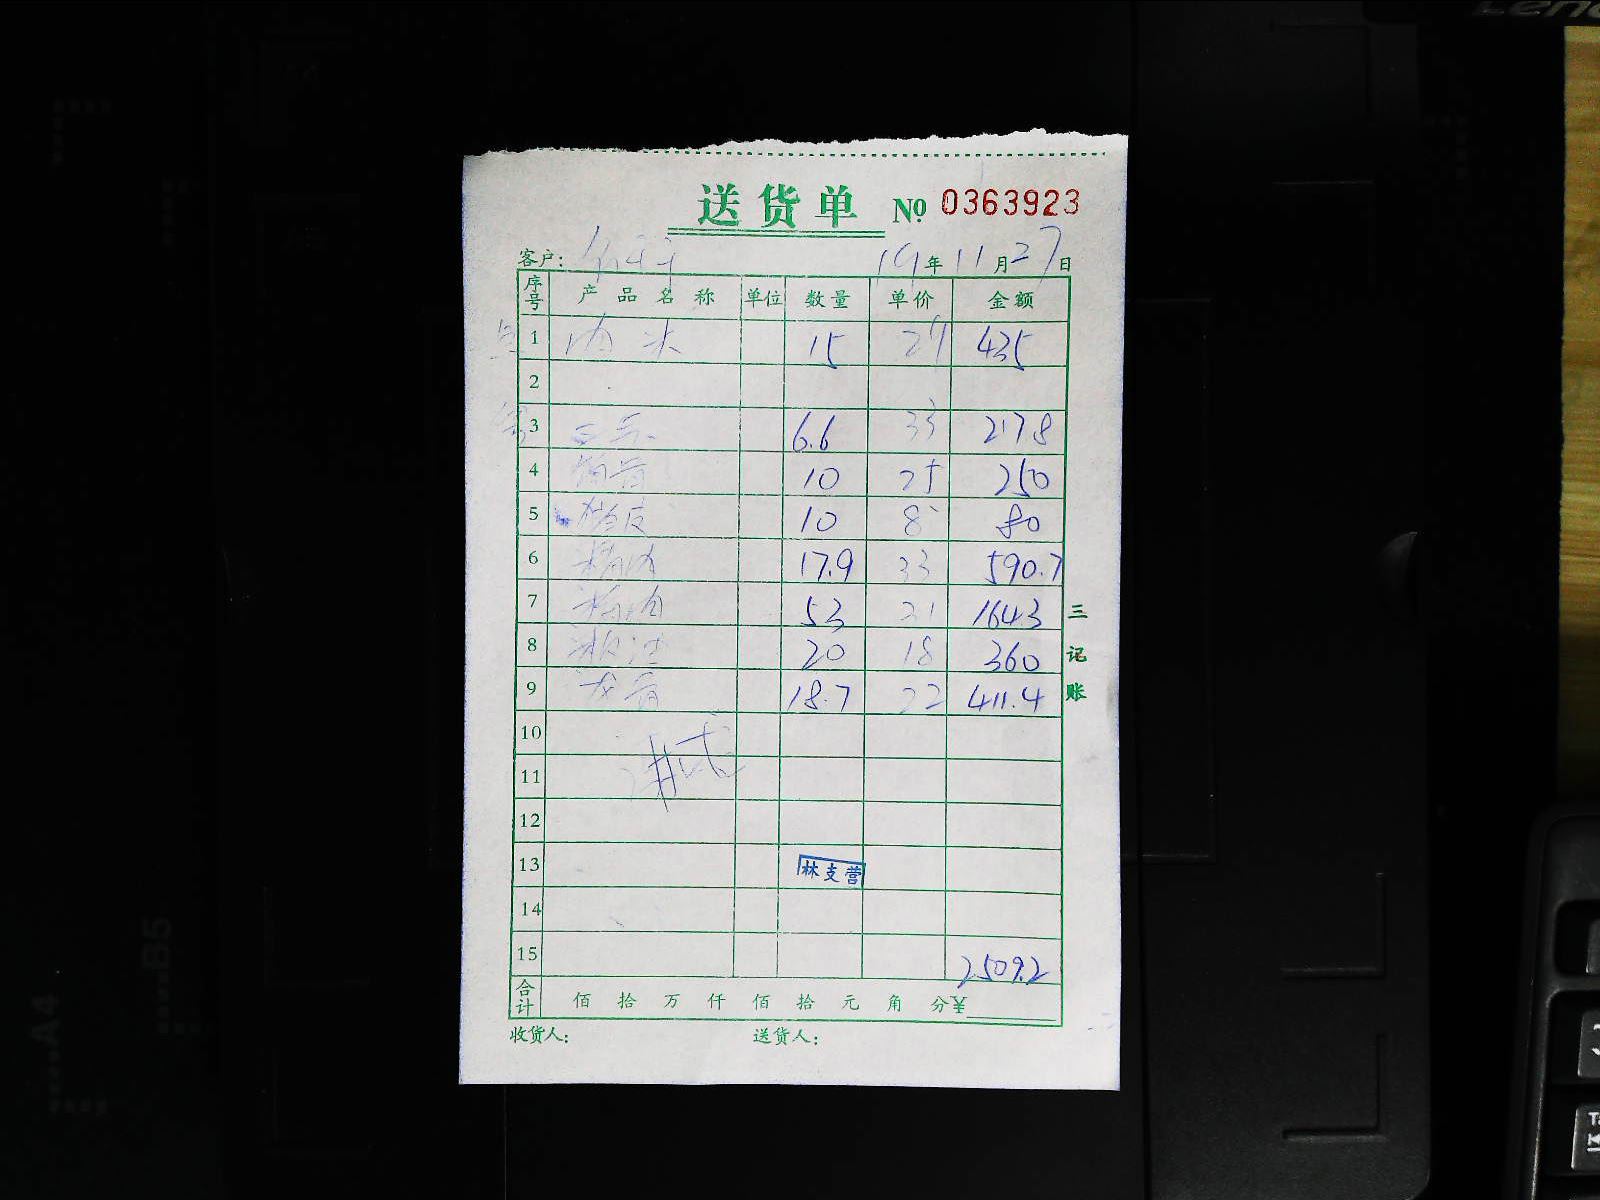 送货单 № 0363923
客户: 19年11月27日
序号 产品名称 单位 数量 单价 金额
1 肉 15 29 435
2
3 6.6 33 217.8
4 10 25 250
5 猪皮 10 8 80
6 精肉 17.9 33 590.7
7 53 31 1643
8 20 18 360
9 龙骨 18.7 22 411.4
10
11
12
13 林支营
14
15 2509.2
合计 佰 拾 万 仟 佰 拾 元 角 分¥
收货人: 送货人:
三记账
Lenovo
A4
B5